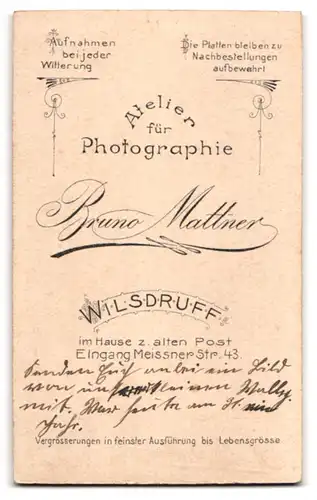 Aufnahmen
bei jeder
Witterung
Die Platten bleiben zu
Nachbestellungen
aufbewahrt
Atelier
für
Photographie
Bruno Mattner
WILSDRUFF
im Hause z. alten Post
Eingang Meissner Str. 43.
Senden Euch anbei ein Bild
von uns kleinen Wally
mit. War heute am 31. ein
Jahr.
Vergrösserungen in feinster Ausführung bis Lebensgrösse